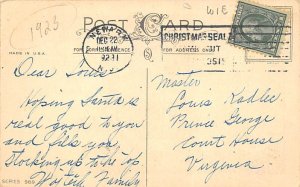 1923
POST CARD
FOR CORRESPONDENCE
FOR ADDRESS ONLY
NEWARK
DEC 22
CHRISTMAS SEALS
MADE IN U.S.A.
Dear Louis:
Hoping Santa is
real good to you
and fills your
stocking up to the top
Family
Master
Louis Kadler
Prince George
Court House
Virginia
SERIES